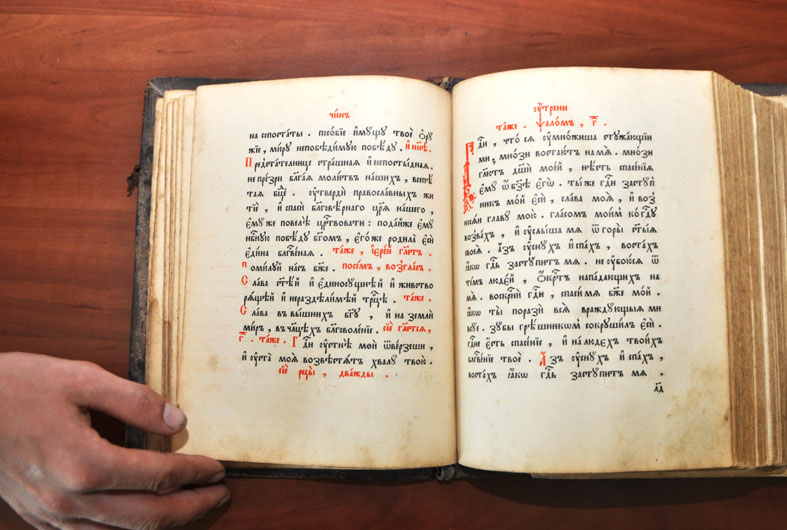 чи́нъ
на сопоста́ты. посо́бїе и҆мꙋ́щꙋ твоѐ ѻ҆рꙋ́
жїе, ми́рꙋ непобѣди́мꙋю побѣ́дꙋ. И҆ ны́нѣ.
Предста́тельнице стра́шнаѧ и҆ непосты́днаѧ.
не пре́зри бл҃га́ѧ моли́твъ на́шихъ, всепѣ́
таѧ бц҃е. ᲂу҆твердѝ правосла́вныхъ жи
тїѐ, и҆ спасѝ бл҃говѣ́рнаго цр҃ѧ̀ на́шего,
є҆мꙋ́же повелѣ̀ ца́рствовати: пода́йже є҆мꙋ̀
нбⷭ҇нꙋю побѣ́дꙋ бг҃омъ, є҆го́же родила̀ є҆сѝ
є҆ди́на бл҃гове́ннаѧ. та́же, і҆ере́й гл҃етъ.
Поми́лꙋй на́съ бж҃е. посе́мъ, во́згласъ.
Сла́ва ст҃ѣ́й и҆ є҆диносꙋ́щнѣй и҆ живот­во
рѧ́щей и҆ нераздѣли́мѣй трⷪ҇цѣ. та́же.
Сла́ва въ вы́шнихъ бг҃ꙋ, и҆ на землѝ
ми́ръ, въ чл҃цѣхъ бл҃говоле́нїе. сїѐ гл҃етсѧ,
г҃. та́же. Гдⷭ҇и ᲂу҆стнѣ̀ моѝ ѿве́рзеши,
и҆ ᲂу҆ста̀ моѧ̀ возвѣстѧ́тъ хвалꙋ̀ твою̀.
сїѐ рцы̀, два́жды.
ᲂу҆́трени
та́же. ѱало́мъ, г҃.
Гдⷭ҇и, что́ сѧ ᲂу҆мно́жиша стꙋжа́ющїи
мѝ, мно́зи востаю́тъ на мѧ̀. мно́зи
гл҃ютъ дш҃ѝ мое́й, нѣ́сть спасе́нїѧ
є҆мꙋ̀ ѡ҆ бз҃ѣ є҆гѡ̀. ты́ же гдⷭ҇и застꙋ́п
ни́къ мо́й є҆сѝ, сла́ва моѧ̀, и҆ воз
носѧ́и главꙋ̀ мою̀. гла́сомъ мои́мъ ко гдⷭ҇ꙋ
воззва́хъ, и҆ ᲂу҆слы́ша мѧ̀ ѿ горы̀ ст҃ы́ѧ
своеѧ̀. А҆́зъ ᲂу҆снꙋ́хъ и҆ спа́хъ, воста́хъ
ꙗ҆́кѡ гдⷭ҇ь застꙋ́питъ мѧ̀. не ᲂу҆бою́сѧ ѿ
те́мъ люде́й, ѡ҆́крестъ напа́дающихъ на
мѧ̀. воскрⷭ҇нѝ гдⷭ҇и, спаси́ мѧ бж҃е мо́й.
ꙗ҆́кѡ ты̀ поразѝ всѧ̀ вражⷣꙋющыѧ мѝ
вꙋ́е. зꙋ́бы грѣ́шникомъ сокрꙋши́лъ є҆сѝ.
гдⷭ҇не є҆́сть спасе́нїе, и҆ на лю́дехъ твои́хъ
бл҃гвⷭ҇е́нїе твоѐ. А҆́зъ ᲂу҆снꙋ́хъ и҆ спа́хъ,
воста́хъ ꙗ҆́кѡ гдⷭ҇ь застꙋ́питъ мѧ̀.
л҃д